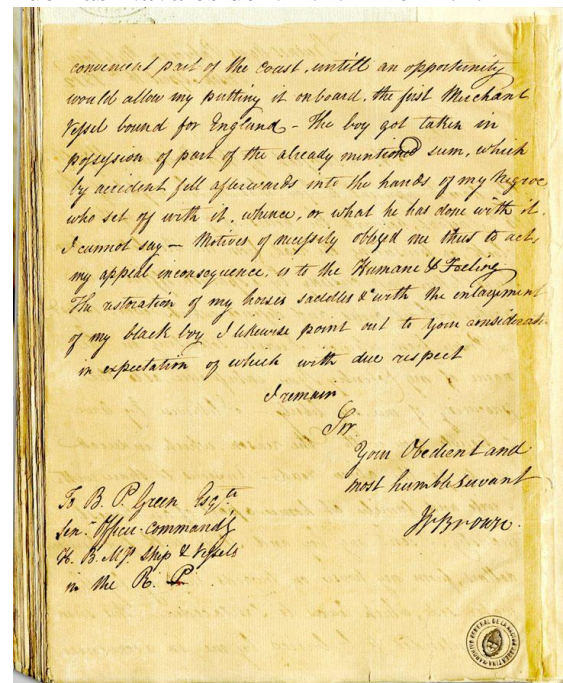 convenient part of the Coast, untill an opportunity
would allow my putting it onboard, the first Merchant
Vessel bound for England - The boy got taken in
possession of part of the already mentioned sum, which
by accident fell afterwards into the hands of my Negroe
who set off with it, whence, or what he has done with it
I cannot say - Motives of necessity obliged me thus to act,
my appeal inconsequence, is to the Humane & Feeling
The restoration of my horses saddles &c with the enlargement
of my black boy I likewise point out to your considerat
in expectation of which with due respect
I remain
Sir
Your Obedient and
most humble Servant
Brown.
To B. P. Green Esq
Sen. Officer Commandg
H. B. M. Ship & Vessels
in the R. P.